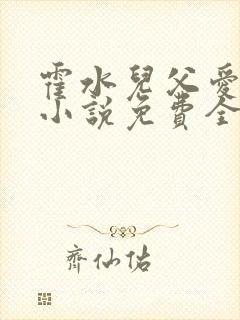 霍水兒父愛
小說免費全
齊仙佑